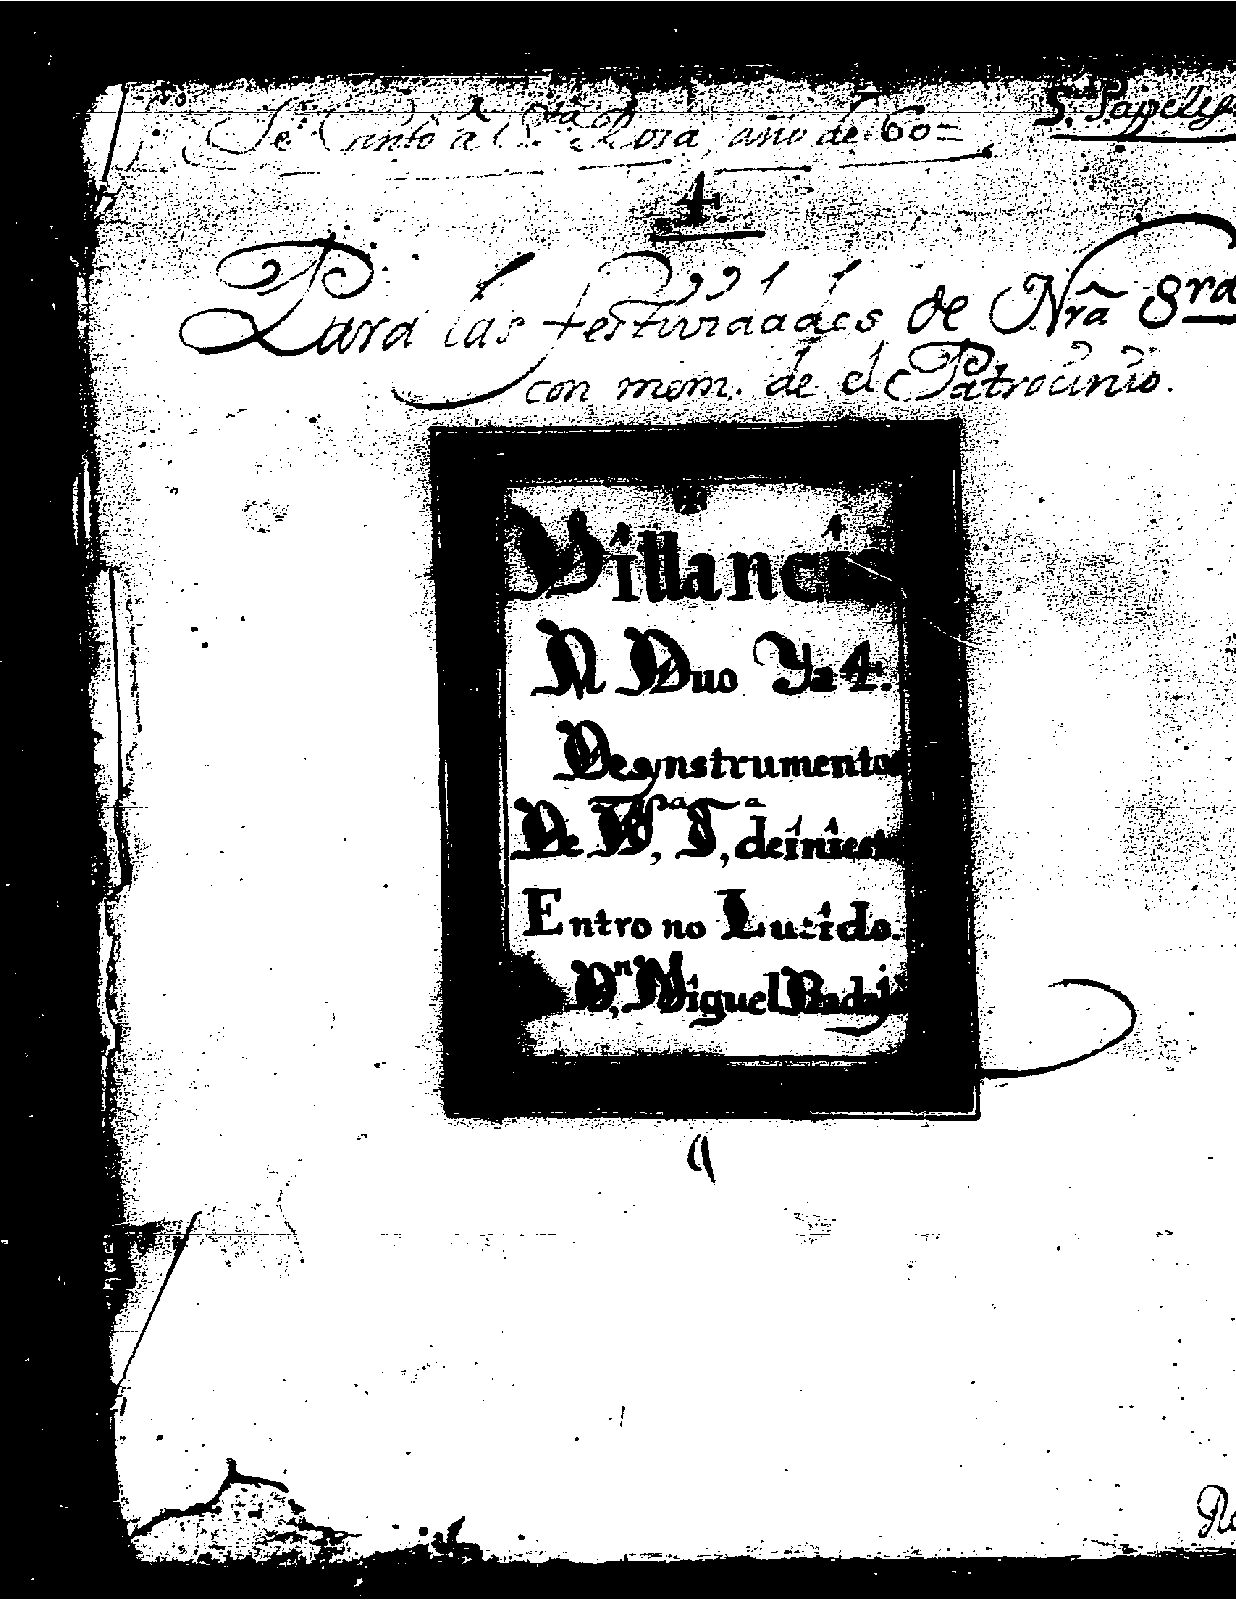 Se Canto a la S.ta Rosa, año de 60=
5. Papeles
4.
Para las festividades de Nrã Sra
con mem. de el Patrocinio.
Villancico
A Duo Ya 4.
De ynstrumentos
De
Entro no Lucido.
Dn, Miguel